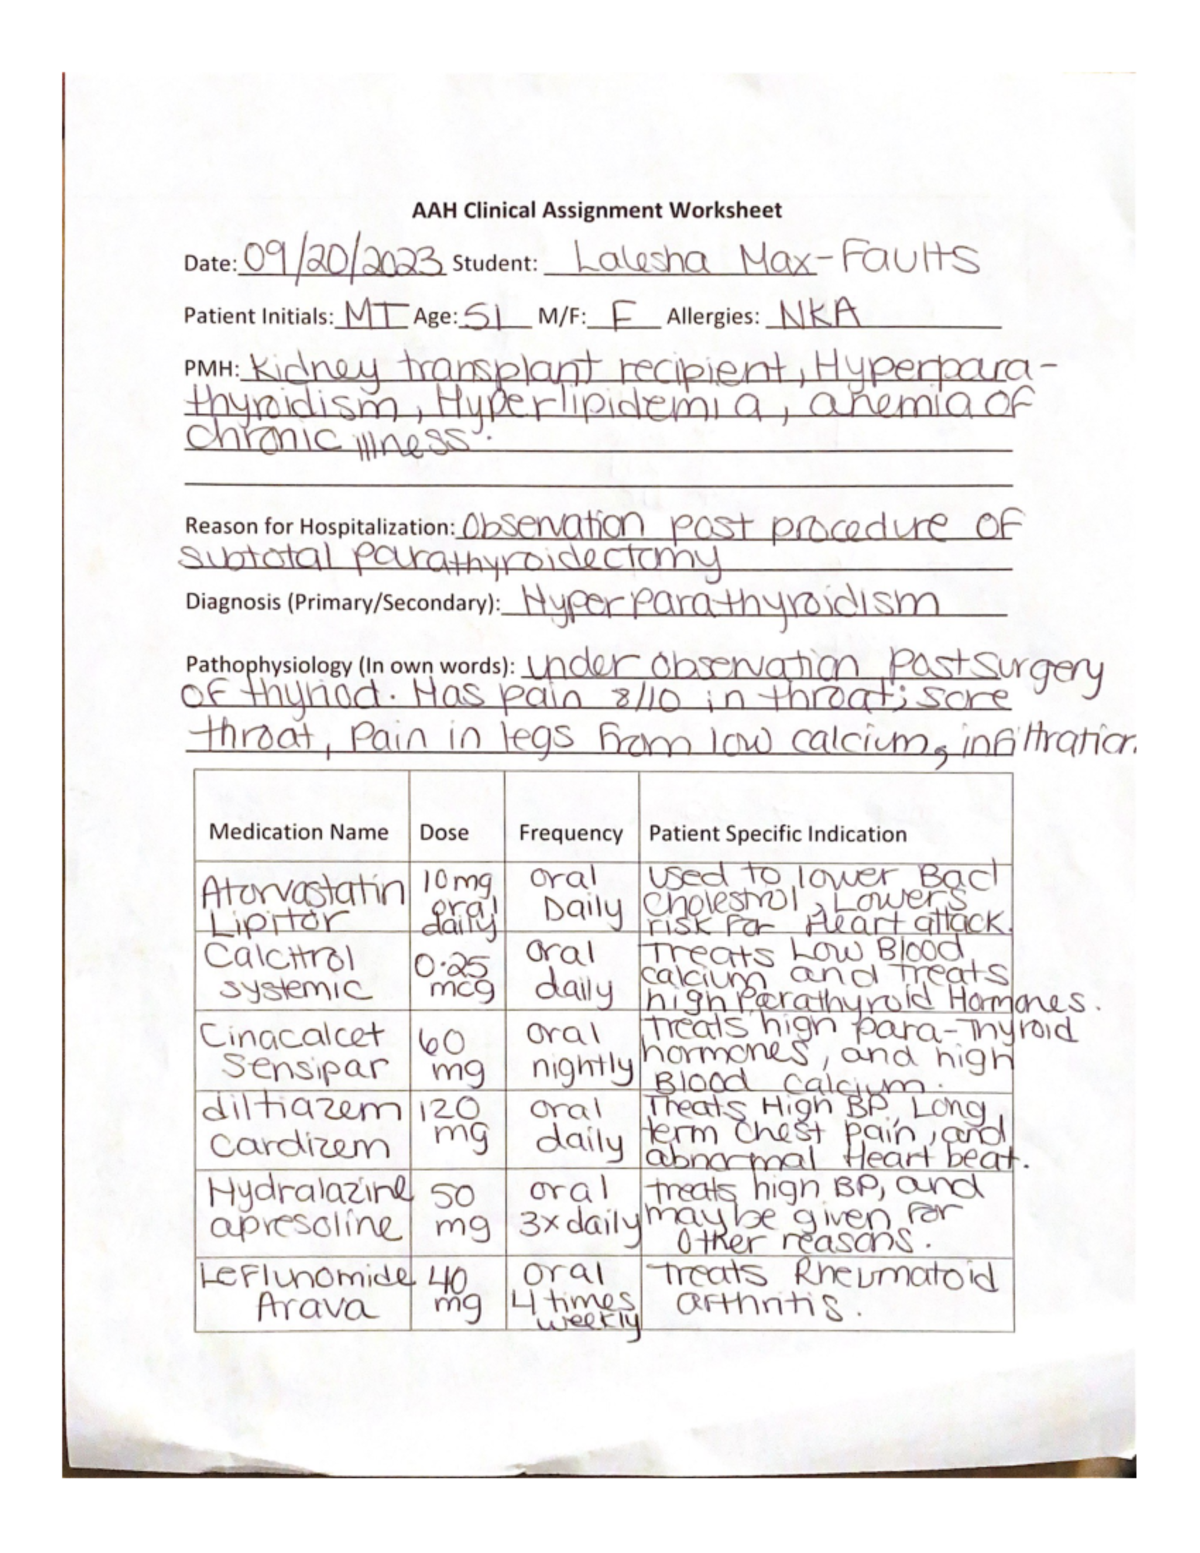 AAH Clinical Assignment Worksheet
Date: 09/20/2023 Student: Lalesha Max-Faults
Patient Initials: MT Age: 51 M/F: F Allergies: NKA
PMH: Kidney transplant recipient, Hyperpara-
thyroidism, Hyperlipidemia, anemia of
chronic illness.
Reason for Hospitalization: Observation post procedure of
subtotal parathyroidectomy
Diagnosis (Primary/Secondary): Hyperparathyroidism
Pathophysiology (In own words): under observation post surgery
of thyriod. Has pain 8/10 in throat; sore
throat, Pain in legs from low calcium, infiltration.
Medication Name Dose Frequency Patient Specific Indication
Atorvastatin 10mg oral used to lower Bad
Lipitor oral daily Daily Cholestrol, Lowers
risk for Heart attack.
Calcitrol 0.25 oral Treats Low Blood
systemic mcg daily calcium and treats
high Parathyroid Hormones.
Cinacalcet 60 oral Treats high para-Thyroid
Sensipar mg nightly hormones, and high
Blood calcium.
diltiazem 120 oral Treats High BP, Long
Cardizem mg daily term chest pain, and
abnormal Heart beat.
Hydralazine 50 oral treats high BP, and
apresoline mg 3x daily may be given for
other reasons.
Leflunomide 40 oral Treats Rheumatoid
Arava mg 4 times arthritis.
weekly